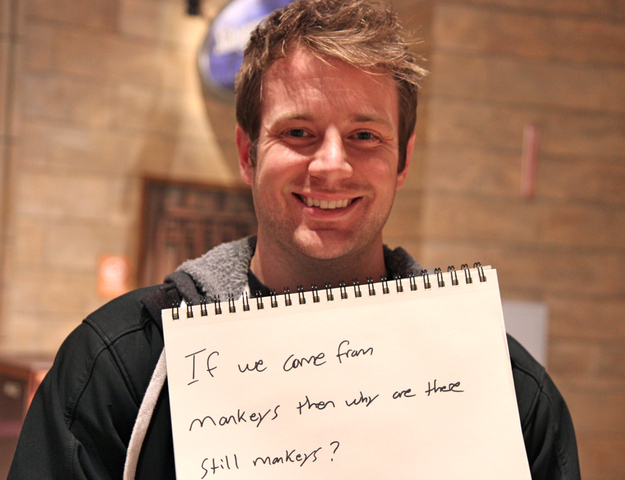 If we come from
monkeys then why are there
still monkeys?